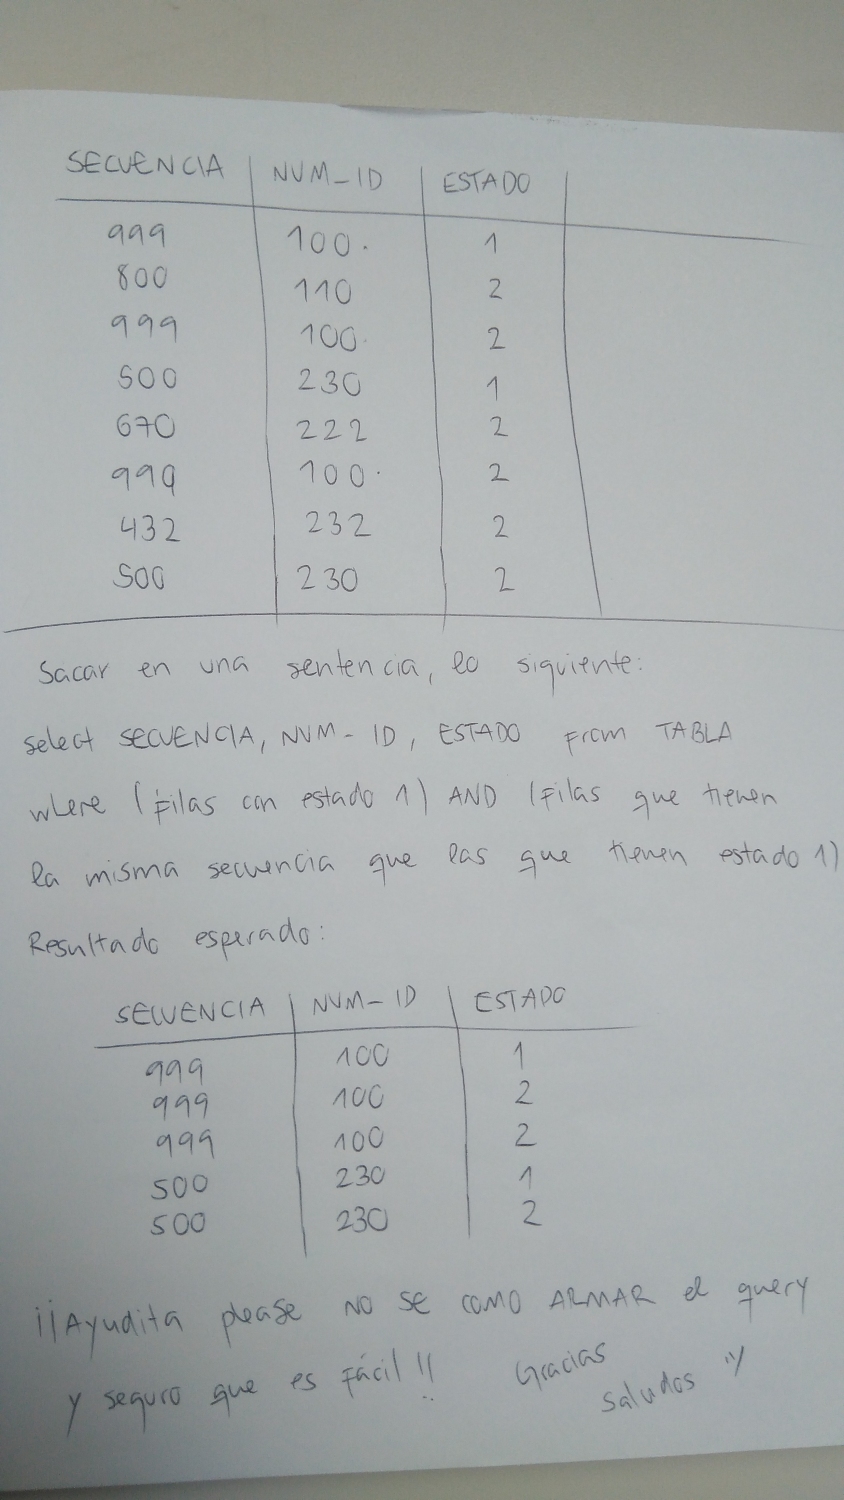 SECUENCIA NUM_ID ESTADO
999 100. 1
800 110 2
999 100. 2
500 230 1
670 222 2
999 100. 2
432 232 2
500 230 2
Sacar en una sentencia, lo siguiente:
select SECUENCIA, NUM-ID, ESTADO from TABLA
where (filas con estado 1) AND (filas que tienen
la misma secuencia que las que tienen estado 1)
Resultado esperado:
SECUENCIA NUM-ID ESTADO
999 100 1
999 100 2
999 100 2
500 230 1
500 230 2
¡¡Ayudita please NO SE COMO ARMAR el query
y seguro que es fácil!!
Gracias
saludos